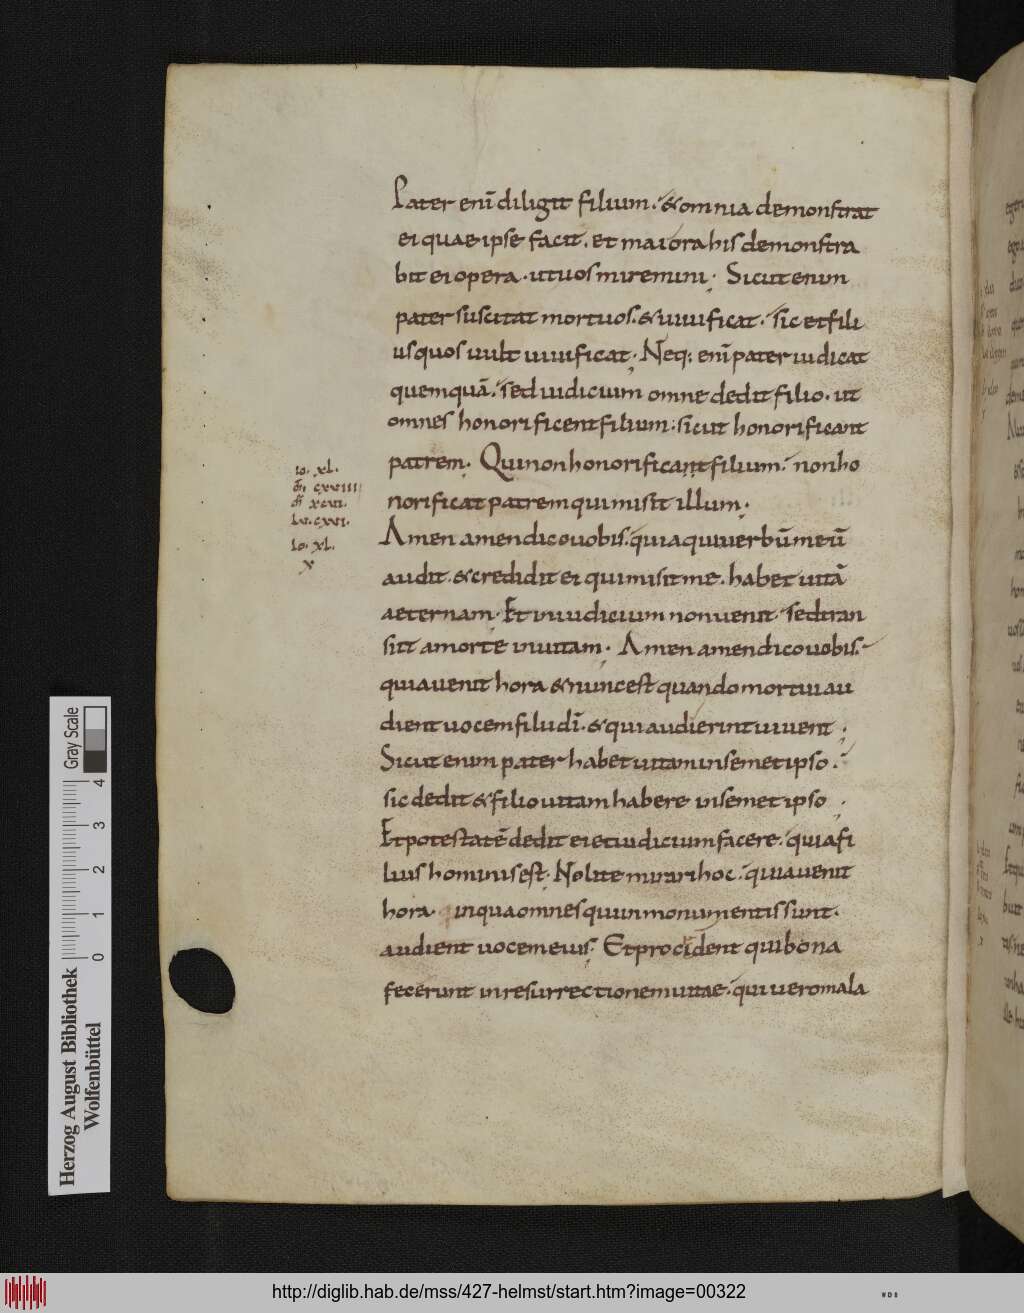 Pater enī diligit filium. & omnia demonstrat
ei quae ipse facit. et maiora his demonstra
bit ei opera. ut uos miremini. Sicut enim
pater suscitat mortuos. & uiuificat. sic et fili
us quos uult uiuificat. Neq; enī pater iudicat
quemquā. sed iudicium omne dedit filio. ut
omnes honorificent filium. sicut honorificant
patrem. Qui non honorificant filium. non ho
norificat patrem qui misit illum.
Amen amen dico uobis. quia qui uerbū meū
audit. & credidit ei qui misit me. habet uitā
aeternam. Et in iudicium non uenit. sed tran
sit a morte in uitam. Amen amen dico uobis.
quia uenit hora & nunc est quando mortui au
dient uocem filii dī. & qui audierint uiuent.
Sicut enim pater habet uitam in semet ipso.
sic dedit & filio uitam habere in semet ipso.
Et potestatē dedit ei et iudicium facere. quia fi
lius hominis est. Nolite mirari hoc. quia uenit
hora. in qua omnes qui in monumentis sunt.
audient uocem eius. Et procident qui bona
fecerunt in resurrectionem uitae. qui uero mala
Io. XL.
CXVIII
XCVII.
Lu. CXVI.
Io. XL.
X
Gray Scale
0 1 2 3 4
Herzog August Bibliothek
Wolfenbüttel
http://diglib.hab.de/mss/427-helmst/start.htm?image=00322